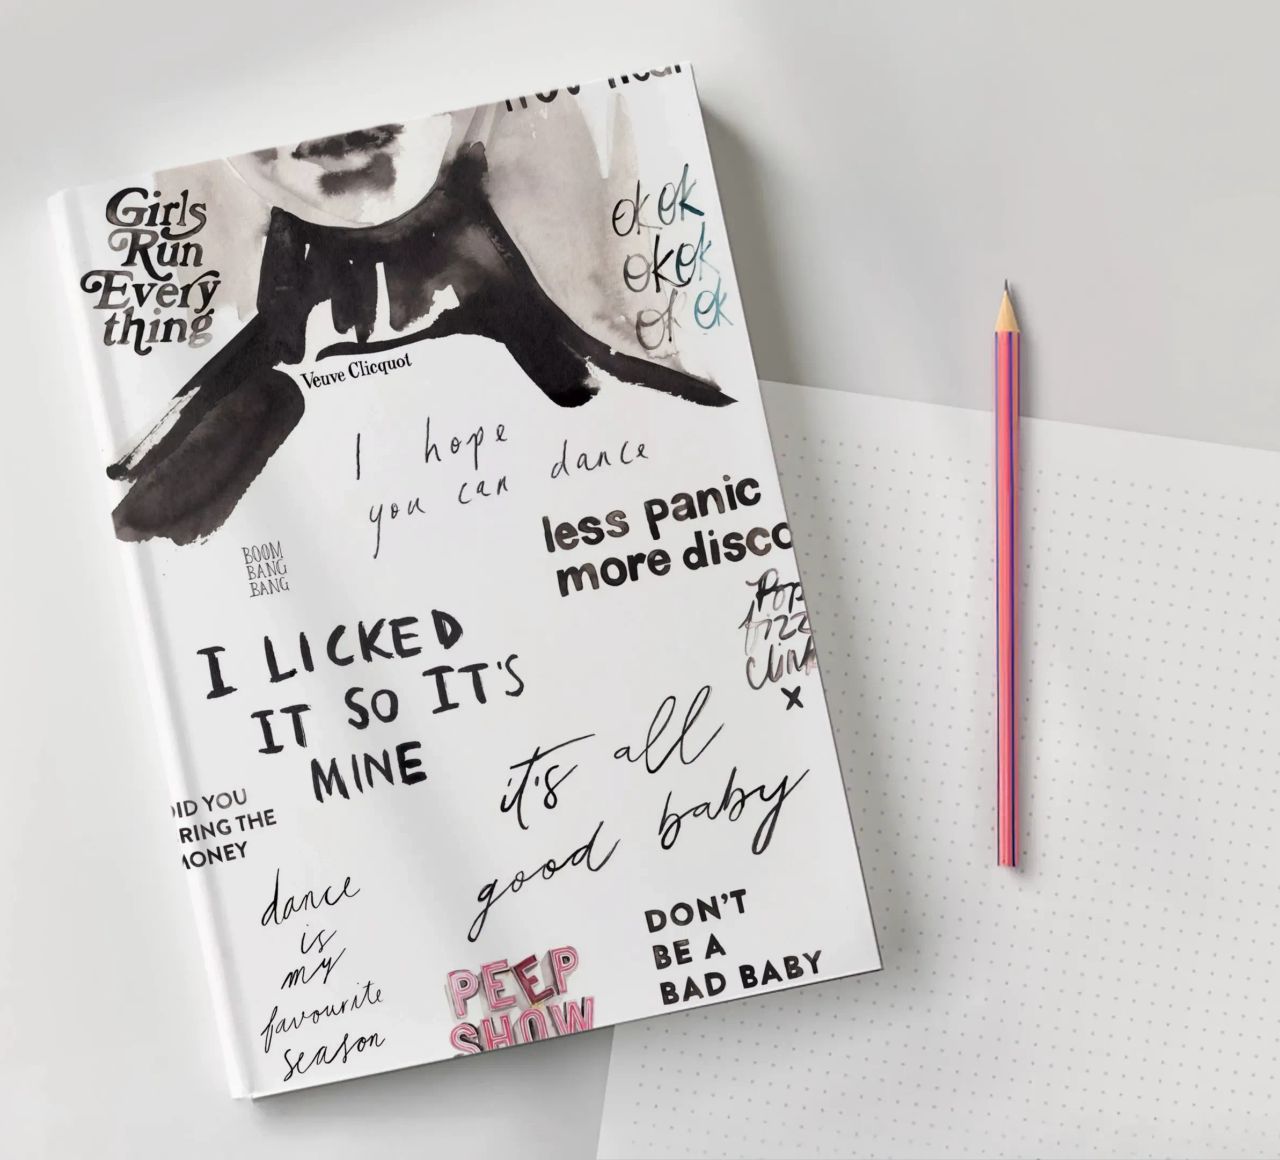 Girls
Run
Every
thing
ok ok
ok ok
ok ok
Veuve Clicquot
I hope
you can dance
less panic
more disco
BOOM
BANG
BANG
Pop
fizz
clink
x
I LICKED
IT SO IT'S
MINE
it's all
good baby
DID YOU
BRING THE
MONEY
dance
is
my
favourite
season
PEEP
SHOW
DON'T
BE A
BAD BABY